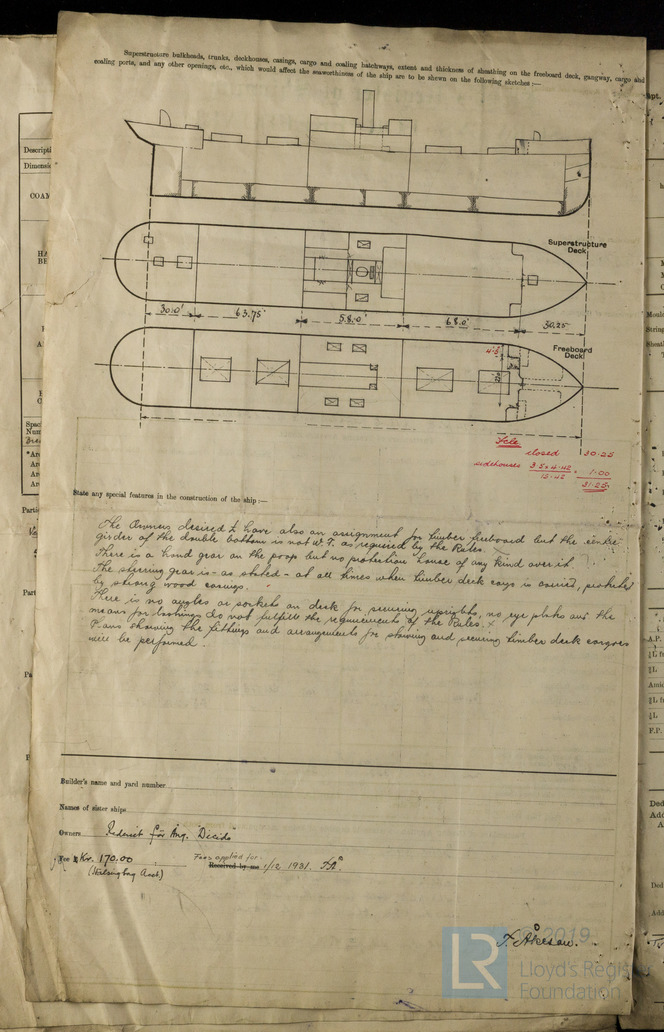 Superstructure bulkheads, trunks, deckhouses, casings, cargo and coaling hatchways, extent and thickness of sheathing on the freeboard deck, gangway, cargo and
coaling ports, and any other openings, etc., which would affect the seaworthiness of the ship are to be shewn on the following sketches:—
Superstructure
Deck
30.0'
63.75'
58.0'
68.0'
30.25
Freeboard
Deck
closed 30.25
sidehouses
15.42
1.00
31.25
State any special features in the construction of the ship:—
The Owners desired to have also an assignment for timber freeboard but the centre
girder of the double bottom is not W.T. as required by the Rules.
There is a hand gear on the poop but no protection house of any kind over it.
The steering gear is - as stated - at all times when timber deck cargo is carried, protected
by strong wood casings.
There is no angles or sockets on deck for securing uprights, no eye plates and the
means for lashings do not fulfill the requirements of the Rules. x
Plans showing the fittings and arrangements for stowing and securing timber deck cargoes
will be performed.
Builder's name and yard number
Names of sister ships
Owners Rederiet för Ång. "Decido"
Fee Kr. 170.00
Fees applied for
Received by me 1/12 1931. FÅ.
(Helsingborg Acct)
F. Åkeson.
2019
LR
Lloyd's Register
Foundation
Descripti
Dimensi
COAM
Part
A.P.
Amid
F.P.
Ded
Add
Ded
Add